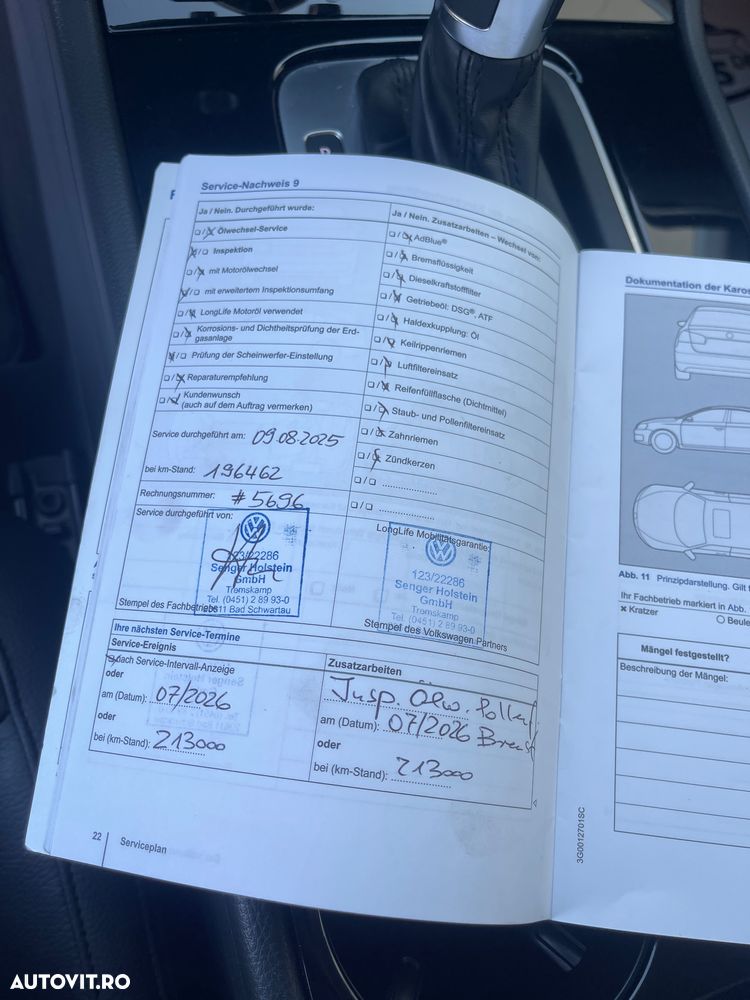 Service-Nachweis 9
Ja / Nein. Durchgeführt wurde:
Ölwechsel-Service
Inspektion
mit Motorölwechsel
mit erweitertem Inspektionsumfang
LongLife Motoröl verwendet
Korrosions- und Dichtheitsprüfung der Erd-
gasanlage
Prüfung der Scheinwerfer-Einstellung
Reparaturempfehlung
Kundenwunsch
(auch auf dem Auftrag vermerken)
Service durchgeführt am: 09.08.2025
bei km-Stand: 196462
Rechnungsnummer: #5696
Service durchgeführt von:
123/22286
Senger Holstein
GmbH
Tremskamp
Tel. (0451) 2 89 93-0
23611 Bad Schwartau
Stempel des Fachbetriebs
Ja / Nein. Zusatzarbeiten – Wechsel von:
AdBlue®
Bremsflüssigkeit
Dieselkraftstofffilter
Getriebeöl: DSG®, ATF
Haldexkupplung: Öl
Keilrippenriemen
Luftfiltereinsatz
Reifenfüllflasche (Dichtmittel)
Staub- und Pollenfiltereinsatz
Zahnriemen
Zündkerzen
LongLife Mobilitätsgarantie:
123/22286
Senger Holstein
GmbH
Tremskamp
Tel. (0451) 2 89 93-0
Stempel des Volkswagen Partners
Ihre nächsten Service-Termine
Service-Ereignis
nach Service-Intervall-Anzeige
oder
am (Datum): 07/2026
oder
bei (km-Stand): 213000
Zusatzarbeiten
Insp. Ölw. Pollenf.
am (Datum): 07/2026
oder
bei (km-Stand): 213000
22 Serviceplan
Dokumentation der Karos
Abb. 11 Prinzipdarstellung. Gilt
Ihr Fachbetrieb markiert in Abb.
Kratzer
Beule
Mängel festgestellt?
Beschreibung der Mängel:
3G0012701SC
AUTOVIT.RO